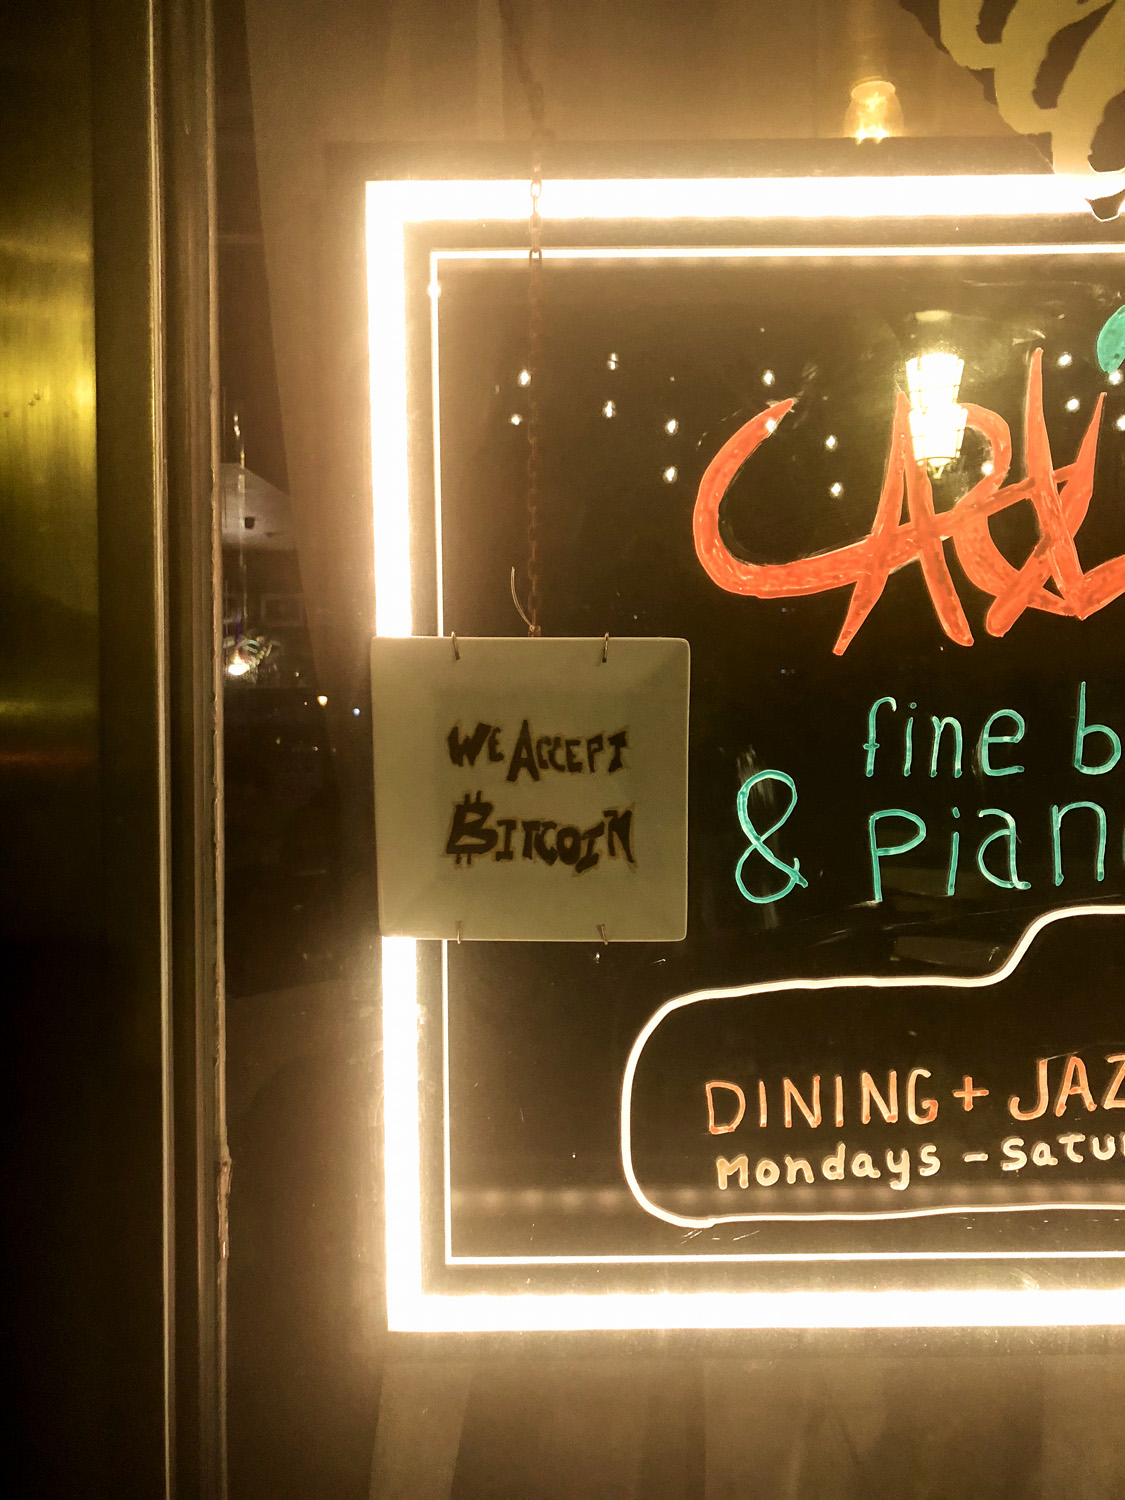 WE ACCEPT
BITCOIN
fine b
& Pian
DINING + JAZ
Mondays - Satu